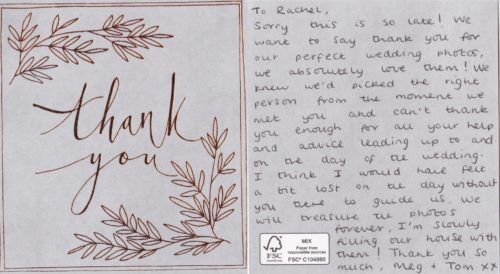 thank
you
To Rachel,
Sorry this is so late! We
want to say thank you for
our perfect wedding photos,
we absolutely love them! We
knew we'd picked the right
person from the moment we
met you and can't thank
you enough for all your help
and advice leading up to and
on the day of the wedding.
I think I would have felt
a bit lost on the day without
you there to guide us. We
will treasure the photos
forever, I'm slowly
filling our house with
them! Thank you so
much, Meg + Tom xx
FSC
www.fsc.org
MIX
Paper from
responsible sources
FSC® C104990